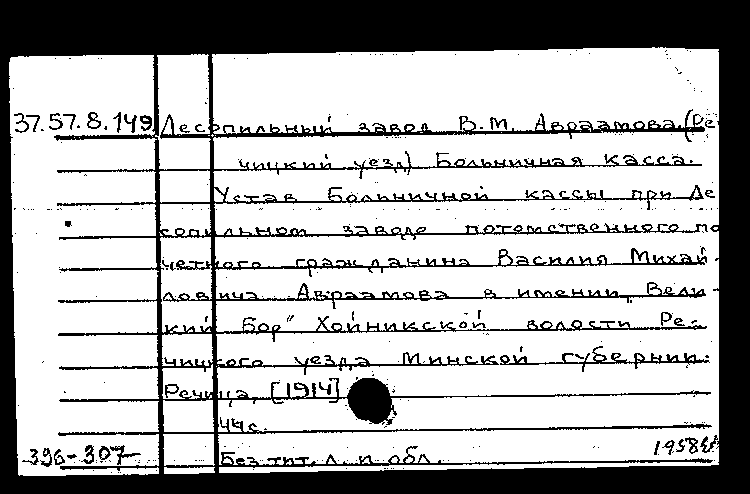 37.57.8.149 Лесопильный завод В.М. Авраамова. (Ре-
чицкий уезд) Больничная касса.
Устав Больничной кассы при Ле
сопильном заводе потомственного по
четного гражданина Василия Михай-
ловича Авраамова в имении „Вели-
кий Бор" Хойникской волости Ре-
чицкого уезда Минской губернии.
Речица, [1914]
44 с.
396-307 Без тит. л. и обл.